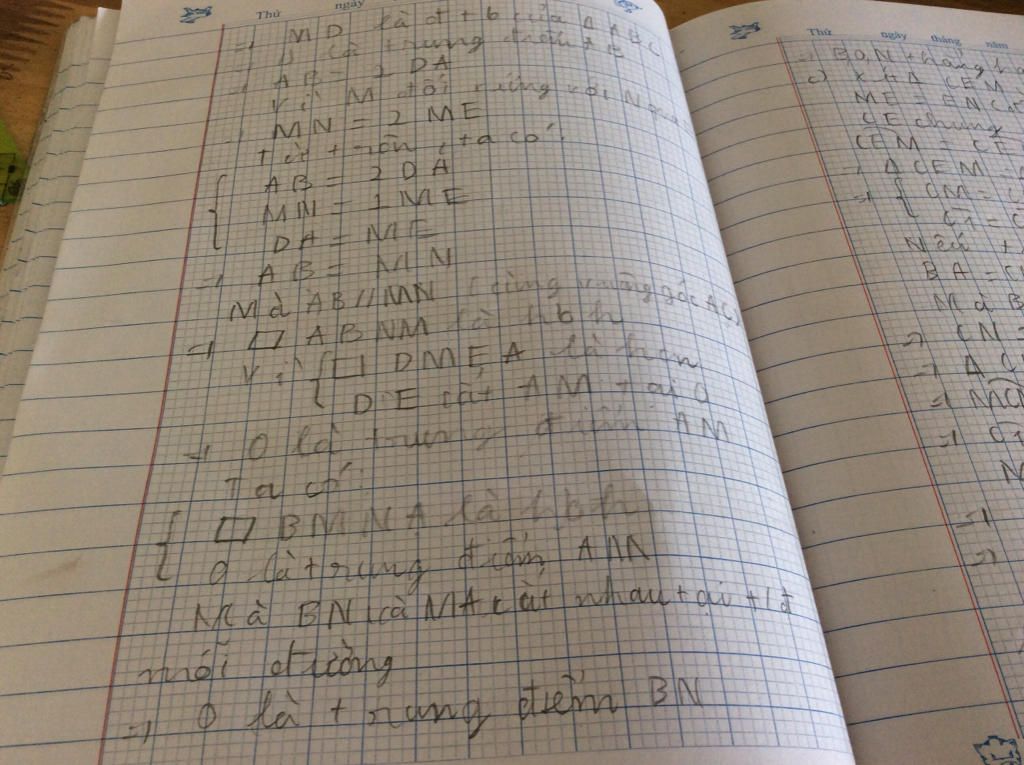 Thứ ngày
=> MD là đ+b của Δ ABC
D là trung điểm AB
=> AB = 2 DA
Vì M đối xứng với N qua
=> MN = 2 ME
Từ trên, ta có:
AB = 2 DA
MN = 2 ME
DA = ME
=> AB = MN
Mà AB // MN (cùng vuông góc AC)
=> ▱ ABNM là hbh
Vì □ DMEA là hcn
DE cắt AM tại O
=> O là trung điểm AM
Ta có:
▱ BMNA là hbh
O là trung điểm AM
Mà BN và MA cắt nhau tại tđ
mỗi đường
=> O là trung điểm BN
Thứ ngày tháng năm
=> BON thẳng
c) Xét Δ CEM
ME = EN
CE chung
CEM = CE
=> Δ CEM =
=> CM = C
Nếu
BA = C
Mà B
=> CN =
=> Δ C
=>
=>
M
=>
=>